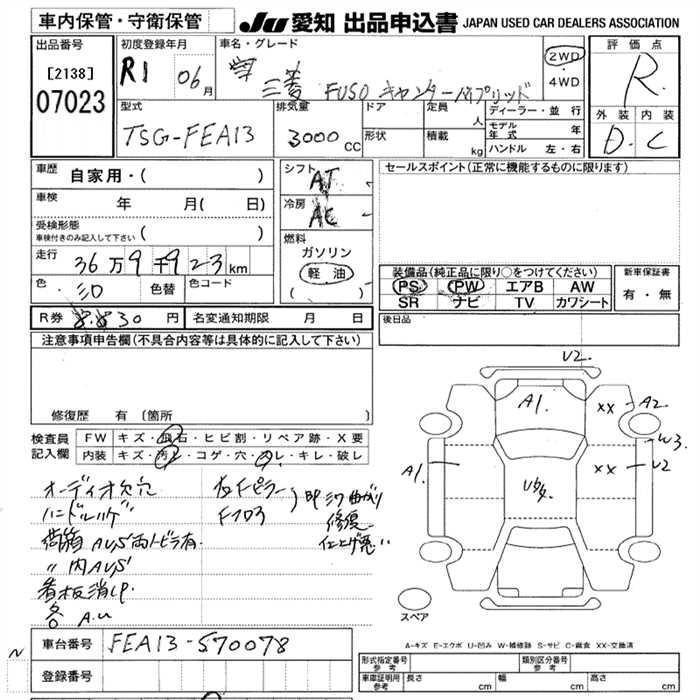 車内保管・守衛保管
JU 愛知 出品申込書 JAPAN USED CAR DEALERS ASSOCIATION
出品番号
[2138]
07023
初度登録年月
R1 06月
車名・グレード
三菱 FUSO キャンター ハイブリッド
2WD
・
4WD
評価点
R
外装 内装
D C
型式
TSG-FEA13
排気量
3000 CC
ドア
形状
定員 人
積載 kg
ディーラー・並行
モデル年式 年
ハンドル 左・右
車歴
自家用・( )
車検
年 月( 日)
受検形態
車検付きのみ記入して下さい ( )
走行
36万9千923km
色 シロ 色替 色コード
R券 8,830円 名変通知期限 月 日
シフト
AT
冷房
AC
燃料
ガソリン
軽油
( )
セールスポイント(正常に機能するものに限ります)
装備品(純正品に限り○をつけてください)
PS PW エアB AW
SR ナビ TV カワシート
新車保証書
有・無
後日品
注意事項申告欄(不具合内容等は具体的に記入して下さい)
修復歴 有 〔箇所 〕
検査員
記入欄
FW キズ・飛石・ヒビ割・リペア跡・X要
内装 キズ・汚レ・コゲ・穴・スレ・キレ・破レ
オーディオ欠穴
ハンドルハゲ
荷箱 AUS 両トビラ有
〃 内AUS
看板消しP
各 A.U
左Fピラー
Fクロス
修復
仕上げ悪い
V2
A1
XX A2
W3
A1
XX U2
スペア
A-キズ E-エクボ U-凹み W-補修跡 S-サビ C-腐食 XX-交換済
車台番号
FEA13-570078
登録番号
N
形式指定番号
参考
類別区分番号
参考
車庫証明用
参考
長さ cm 幅 cm 高さ cm